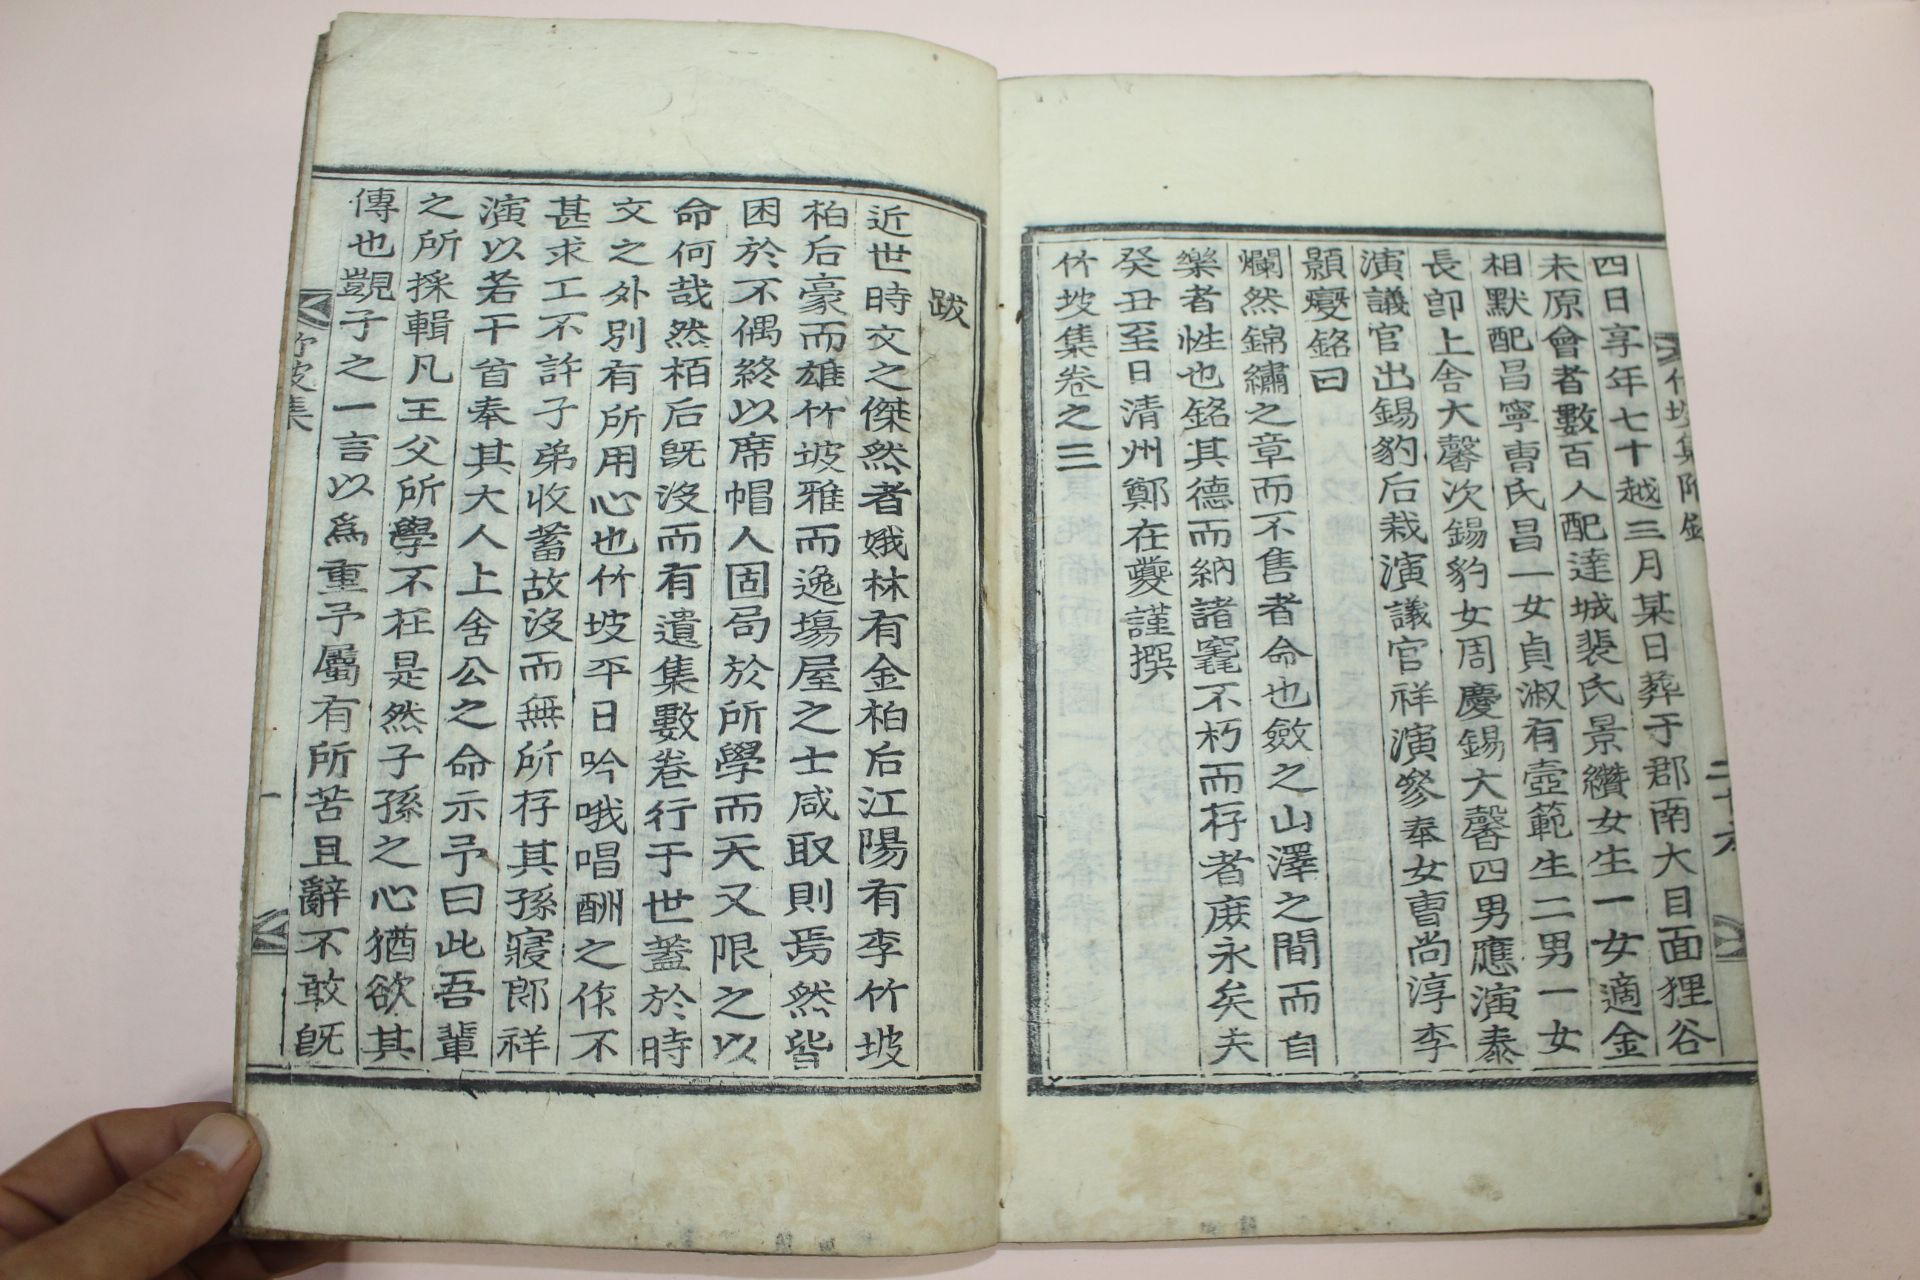 竹坡集附錄
二十六
四日享年七十越三月某日葬于郡南大目面狸谷
未原會者數百人配達城裴氏景纘女生一女適金
相默配昌寧曺氏昌一女貞淑有壺範生二男一女
長卽上舍大馨次錫豹女周慶錫大馨四男應演泰
演議官出錫豹后栽演議官祥演參奉女曺尚淳李
顯燮銘曰
爛然錦繡之章而不售者命也斂之山澤之間而自
樂者性也銘其德而納諸竁不朽而存者庶永矣夫
癸丑至日清州鄭在夔謹撰
竹坡集卷之三
跋
近世時文之傑然者娥林有金柏后江陽有李竹坡
柏后豪而雄竹坡雅而逸場屋之士咸取則焉然皆
困於不偶終以席帽人固局於所學而天又限之以
命何哉然栢后旣沒而有遺集數卷行于世蓋於時
文之外別有所用心也竹坡平日吟哦唱酬之作不
甚求工不許子弟收蓄故沒而無所存其孫寢郎祥
演以若干首奉其大人上舍公之命示予曰此吾輩
之所採輯凡王父所學不在是然子孫之心猶欲其
傳也覬子之一言以爲重予屬有所苦且辭不敢旣
竹坡集
一